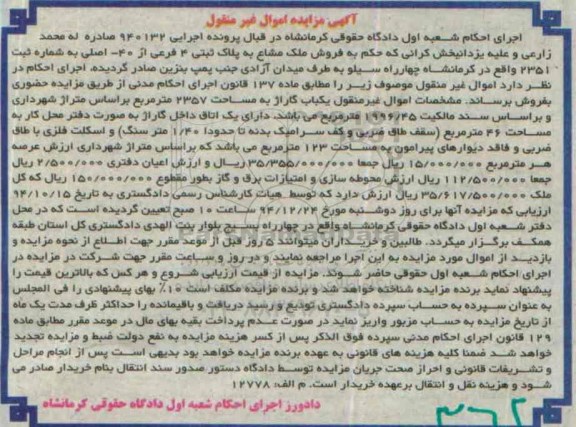 آگهی مزایده اموال غیر منقول
اجرای احکام شعبه اول دادگاه حقوقی کرمانشاه در قبال پرونده اجرایی ۹۴۰۱۳۲ صادره له محمد
زارعی و علیه یزدانبخش کرانی که حکم به فروش ملک مشاع به پلاک ثبتی ۴ فرعی از ۴۰- اصلی به شماره ثبت
۲۳۵۱ واقع در کرمانشاه چهارراه سیلو به طرف میدان آزادی جنب پمپ بنزین صادر گردیده، اجرای احکام در
نظر دارد اموال غیر منقول موصوف زیر را مطابق ماده ۱۳۷ قانون اجرای احکام مدنی از طریق مزایده حضوری
بفروش برساند. مشخصات اموال غیرمنقول یکباب گاراژ به مساحت ۲۳۵۷ مترمربع براساس متراژ شهرداری
و براساس سند مالکیت مترمربع می باشد. دارای یک اتاق داخل گاراژ به صورت دفتر محل کار به
مساحت ۴۶ مترمربع (سقف طاق ضربی و کف سرامیک بدنه تا حدودا ۱/۴۰ متر سنگ) و اسکلت فلزی با طاق
ضربی و فاقد دیوارهای پیرامون به مساحت ۱۲۳ مترمربع می باشد که براساس متراژ شهرداری ارزش عرصه
هر مترمربع ۱۵/۰۰۰/۰۰۰ ریال جمعا ۳۵/۳۵۵/۰۰۰/۰۰۰ ریال و ارزش اعیان دفتری ۲/۵۰۰/۰۰۰ ریال
جمعا ۱۱۲/۵۰۰/۰۰۰ ریال ارزش محوطه سازی و امتیازات برق و گاز بطور مقطوع ۱۵۰/۰۰۰/۰۰۰ ریال که کل
ملک ۳۵/۶۱۷/۵۰۰/۰۰۰ ریال ارزش دارد که توسط هیات کارشناس رسمی دادگستری به تاریخ ۹۴/۱۰/۱۵
ارزیابی که مزایده آنها برای روز دوشنبه مورخ ۹۴/۱۲/۲۴ ساعت ۱۰ صبح تعیین گردیده است که در محل
دفتر شعبه اول دادگاه حقوقی کرمانشاه واقع در چهارراه بسیج بلوار بنت الهدی دادگستری کل استان طبقه
همکف برگزار میگردد. طالبین و خریداران میتوانند ۵ روز قبل از موعد مقرر جهت اطلاع از نحوه مزایده و
بازدید از اموال مورد مزایده به این اجرا مراجعه نمایند و در روز و ساعت مقرر جهت شرکت در مزایده در
اجرای احکام شعبه اول حقوقی حاضر شوند. مزایده از قیمت ارزیابی شروع و هر کس که بالاترین قیمت را
پیشنهاد نماید برنده مزایده شناخته خواهد شد و برنده مزایده مکلف است ۱۰٪ بهای پیشنهادی را فی المجلس
به عنوان سپرده به حساب سپرده دادگستری تودیع و رسید دریافت و باقیمانده را حداکثر ظرف مدت یک ماه
از تاریخ مزایده به حساب مزبور واریز نماید در صورت عدم پرداخت بقیه بهای مال در موعد مقرر مطابق ماده
۱۲۹ قانون اجرای احکام مدنی سپرده فوق الذکر پس از کسر هزینه مزایده به نفع دولت ضبط و مزایده تجدید
خواهد شد ضمنا کلیه هزینه های قانونی به عهده برنده مزایده خواهد بود بدیهی است پس از انجام مراحل
و تشریفات قانونی و احراز صحت جریان مزایده توسط دادگاه دستور صدور سند انتقال بنام خریدار صادر می
شود و هزینه نقل و انتقال برعهده خریدار است. م الف: ۱۲۷۷۸
دادورز اجرای احکام شعبه اول دادگاه حقوقی کرمانشاه